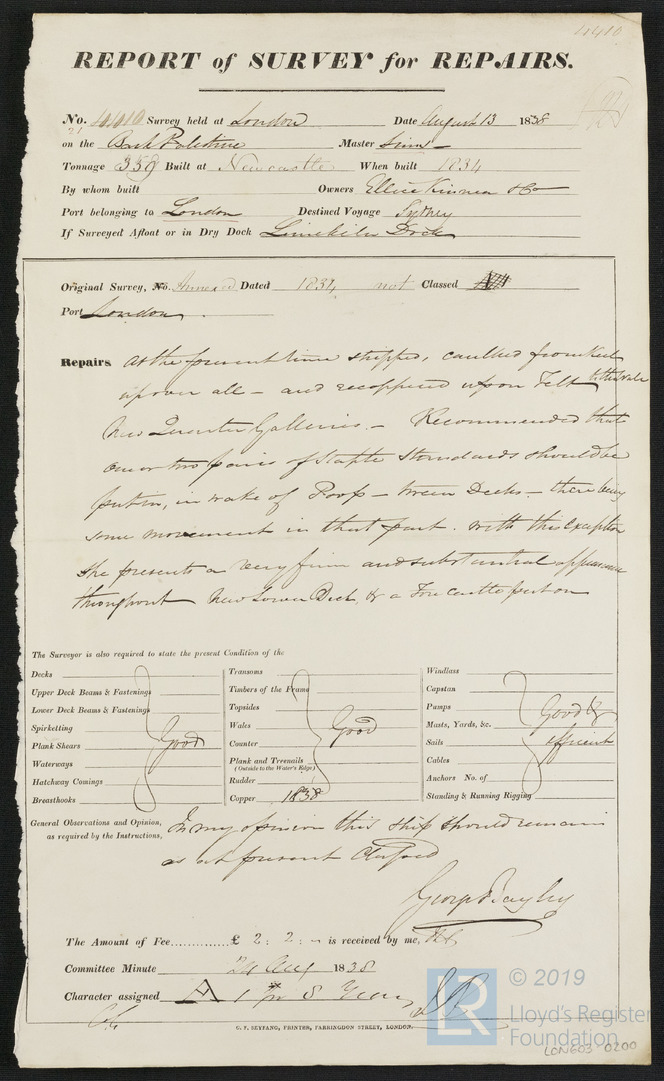 REPORT of SURVEY for REPAIRS.
No. Survey held at London Date August 13 1838
on the Bark Palestine Master Sims
Tonnage 358 Built at Newcastle When built 1834
By whom built Owners Ellice Kinnear & Co
Port belonging to London Destined Voyage Sydney
If Surveyed Afloat or in Dry Dock Limekiln Dock
Original Survey, No. Annexed Dated 1834 not Classed
Port London.
Repairs At the present time stripped, caulked from Keel
upover all – and recoppered upon Felt to the Wales
New Quarter Galleries. – Recommended that
one or two pairs of Staple Standards should be
put in, in wake of Poop – tween Decks – there being
some movement in that part. With this exception
she presents a very firm and substantial appearance
throughout New Lower Deck, & a Fore castle put on
The Surveyor is also required to state the present Condition of the
Decks
Upper Deck Beams & Fastenings
Lower Deck Beams & Fastenings
Spirketting
Plank Shears Good
Waterways
Hatchway Comings
Breasthooks
Transoms
Timbers of the Frame
Topsides
Wales Good
Counter
Plank and Treenails
(Outside to the Water's Edge)
Rudder
Copper 1838
Windlass
Capstan
Pumps Good &
Masts, Yards, &c.
Sails efficient
Cables
Anchors No. of
Standing & Running Rigging
General Observations and Opinion, In my opinion this ship should remain
as required by the Instructions, as at present Classed
George Bayley
The Amount of Fee............. £ 2 : 2 : – is received by me,
Committee Minute 24 Aug 1838
Character assigned A 1 for 8 Years
C. F. SEYFANG, PRINTER, FARRINGDON STREET, LONDON.
© 2019
LR
Lloyd's Register
Foundation
LON603-0200